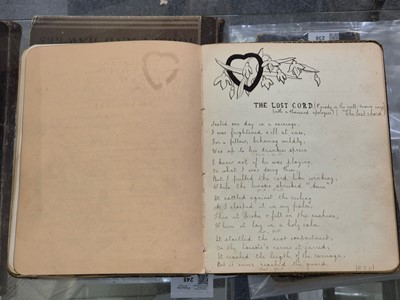 THE LOST CORD. (Parody on the well-known song)
(with a thousand apologies) "The lost chord"
Seated one day in a carriage,
I was frightened & ill at ease,
For a fellow, behaving wildly,
Was up to his drunken sprees
I knew not if he was playing,
Or what I was doing then,
But I pulled the cord like winking,
While the brake shrieked
It rattled against the ceiling
As I clasped it in my palm,
Then it broke & fell on the cushion,
Where it lay in a holy calm.
It startled the next compartment,
It reached the length of the carriage,
But it never reached the guard
248
236